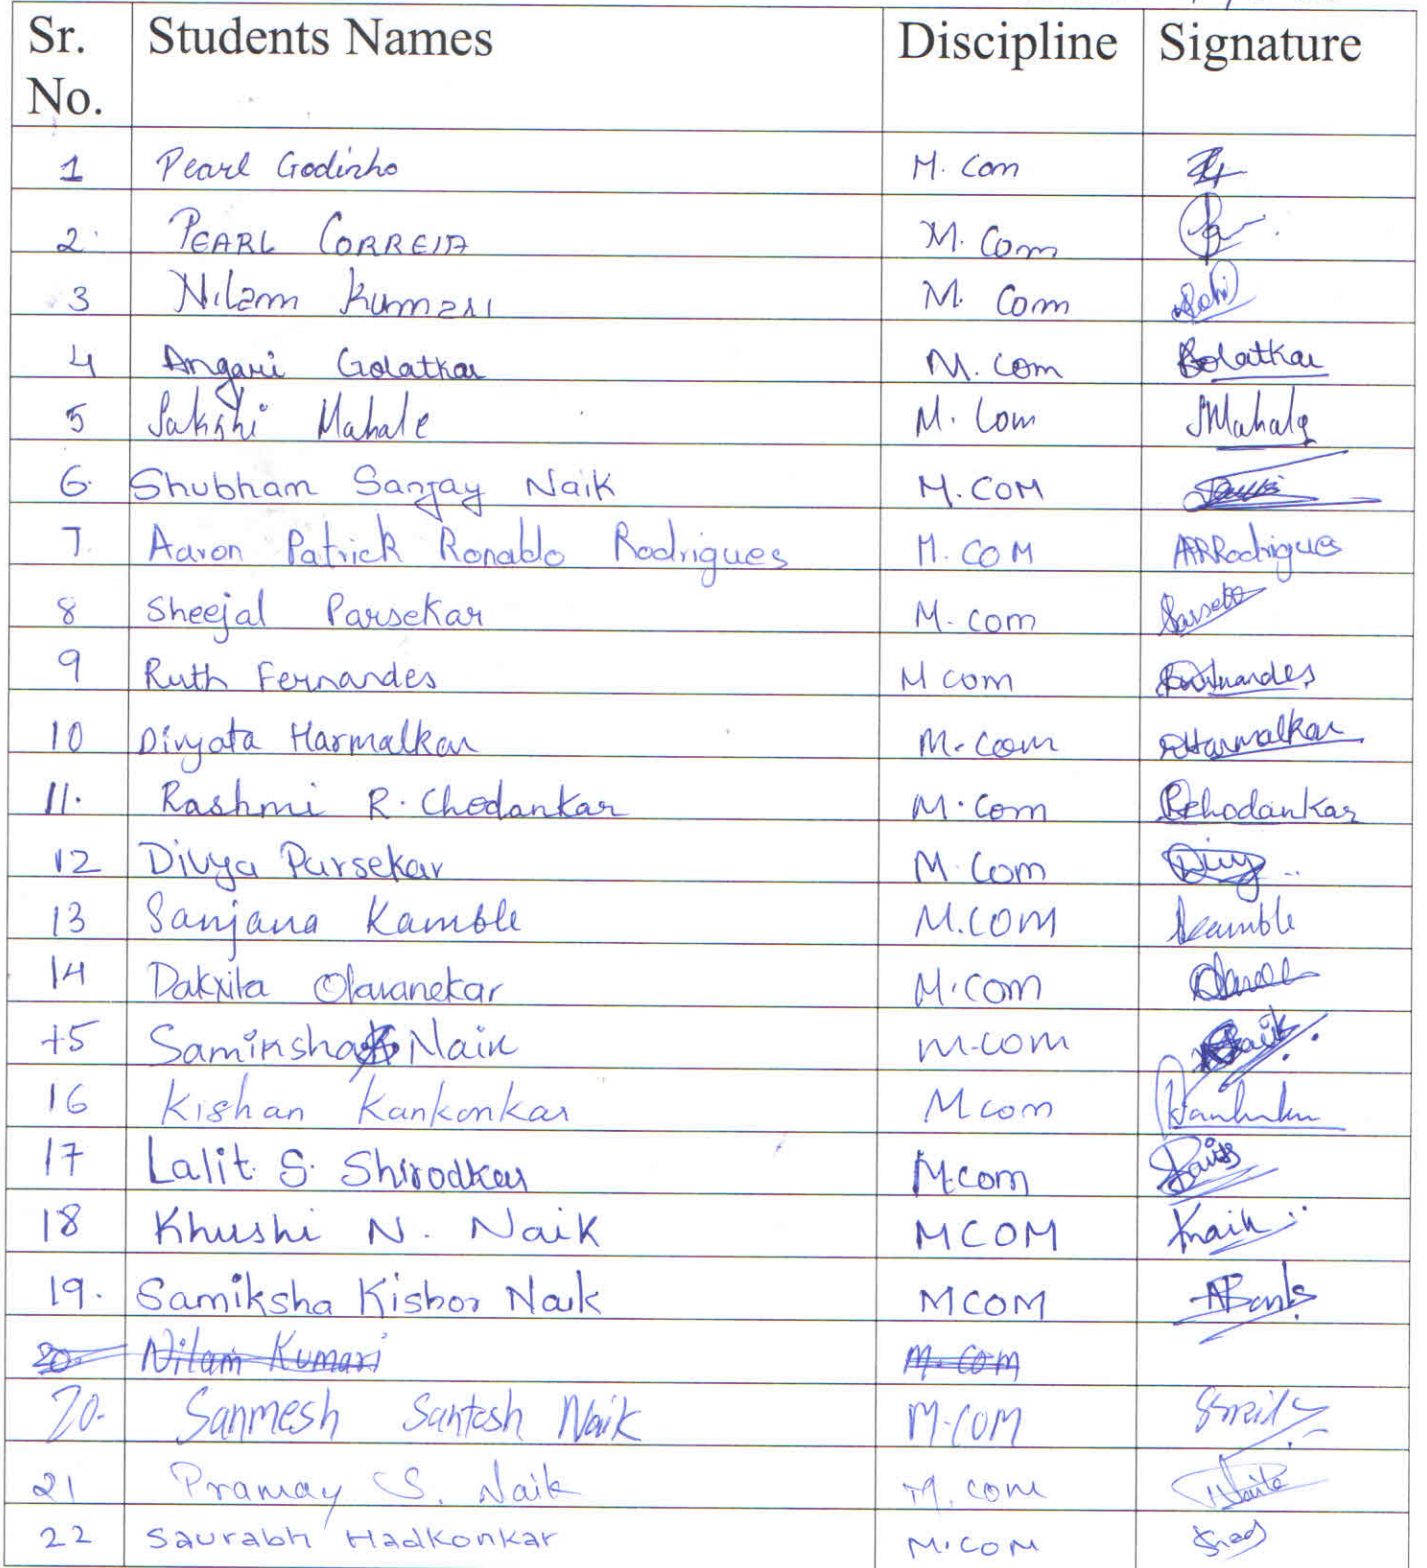 Sr. No. Students Names Discipline Signature
1 Pearl Godinho M. Com
2 PEARL CORREIA M. Com
3 Nilam Kumari M. Com
4 Angavi Golatkar M. com Golatkar
5 Sakshi Mahale M. Com SMahale
6. Shubham Sanjay Naik M. COM
7. Aaron Patrick Ronaldo Rodrigues M. COM APRRodrigues
8 Sheejal Parsekar M. com
9 Ruth Fernandes M com
10 Divyata Harmalkar M. com DHarmalkar
11. Rashmi R. Chodankar M. Com RChodankar
12 Divya Parsekar M. Com Divy
13 Sanjana Kamble M.COM
14 Dakxita Olavanekar M.COM
15 Saminsha Naik M.COM Naik
16 Kishan Kankonkar M com
17 Lalit. S. Shirodkar M.com
18 Khushi N. Naik MCOM Knaik
19. Samiksha Kishor Naik MCOM
20. Nilam Kumari M. COM
20. Sanmesh Santosh Naik M.COM
21 Pramay S. Naik M. COM
22 Saurabh Hadkonkar M.COM